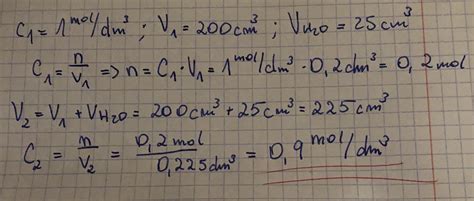 C₁ = 1 mol/dm³ ; V₁ = 200 cm³ ; VH₂O = 25 cm³
C₁ = n/V₁ => n = C₁ · V₁ = 1 mol/dm³ · 0,2 dm³ = 0,2 mol
V₂ = V₁ + VH₂O = 200 cm³ + 25 cm³ = 225 cm³
C₂ = n/V₂ = 0,2 mol/0,225 dm³ = 0,9 mol/dm³